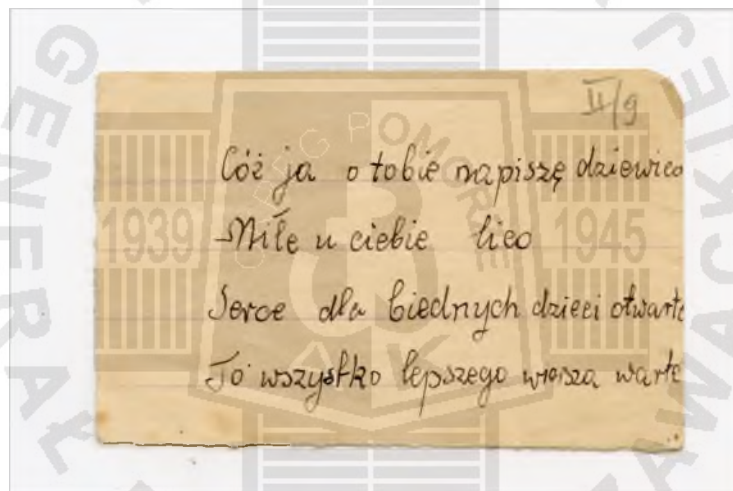 II/9
Cóż ja o tobie napiszę dziewico
Miłe u ciebie lico
Serce dla biednych dzieci otwarte
To wszystko lepszego wiersza warte
1939
1945